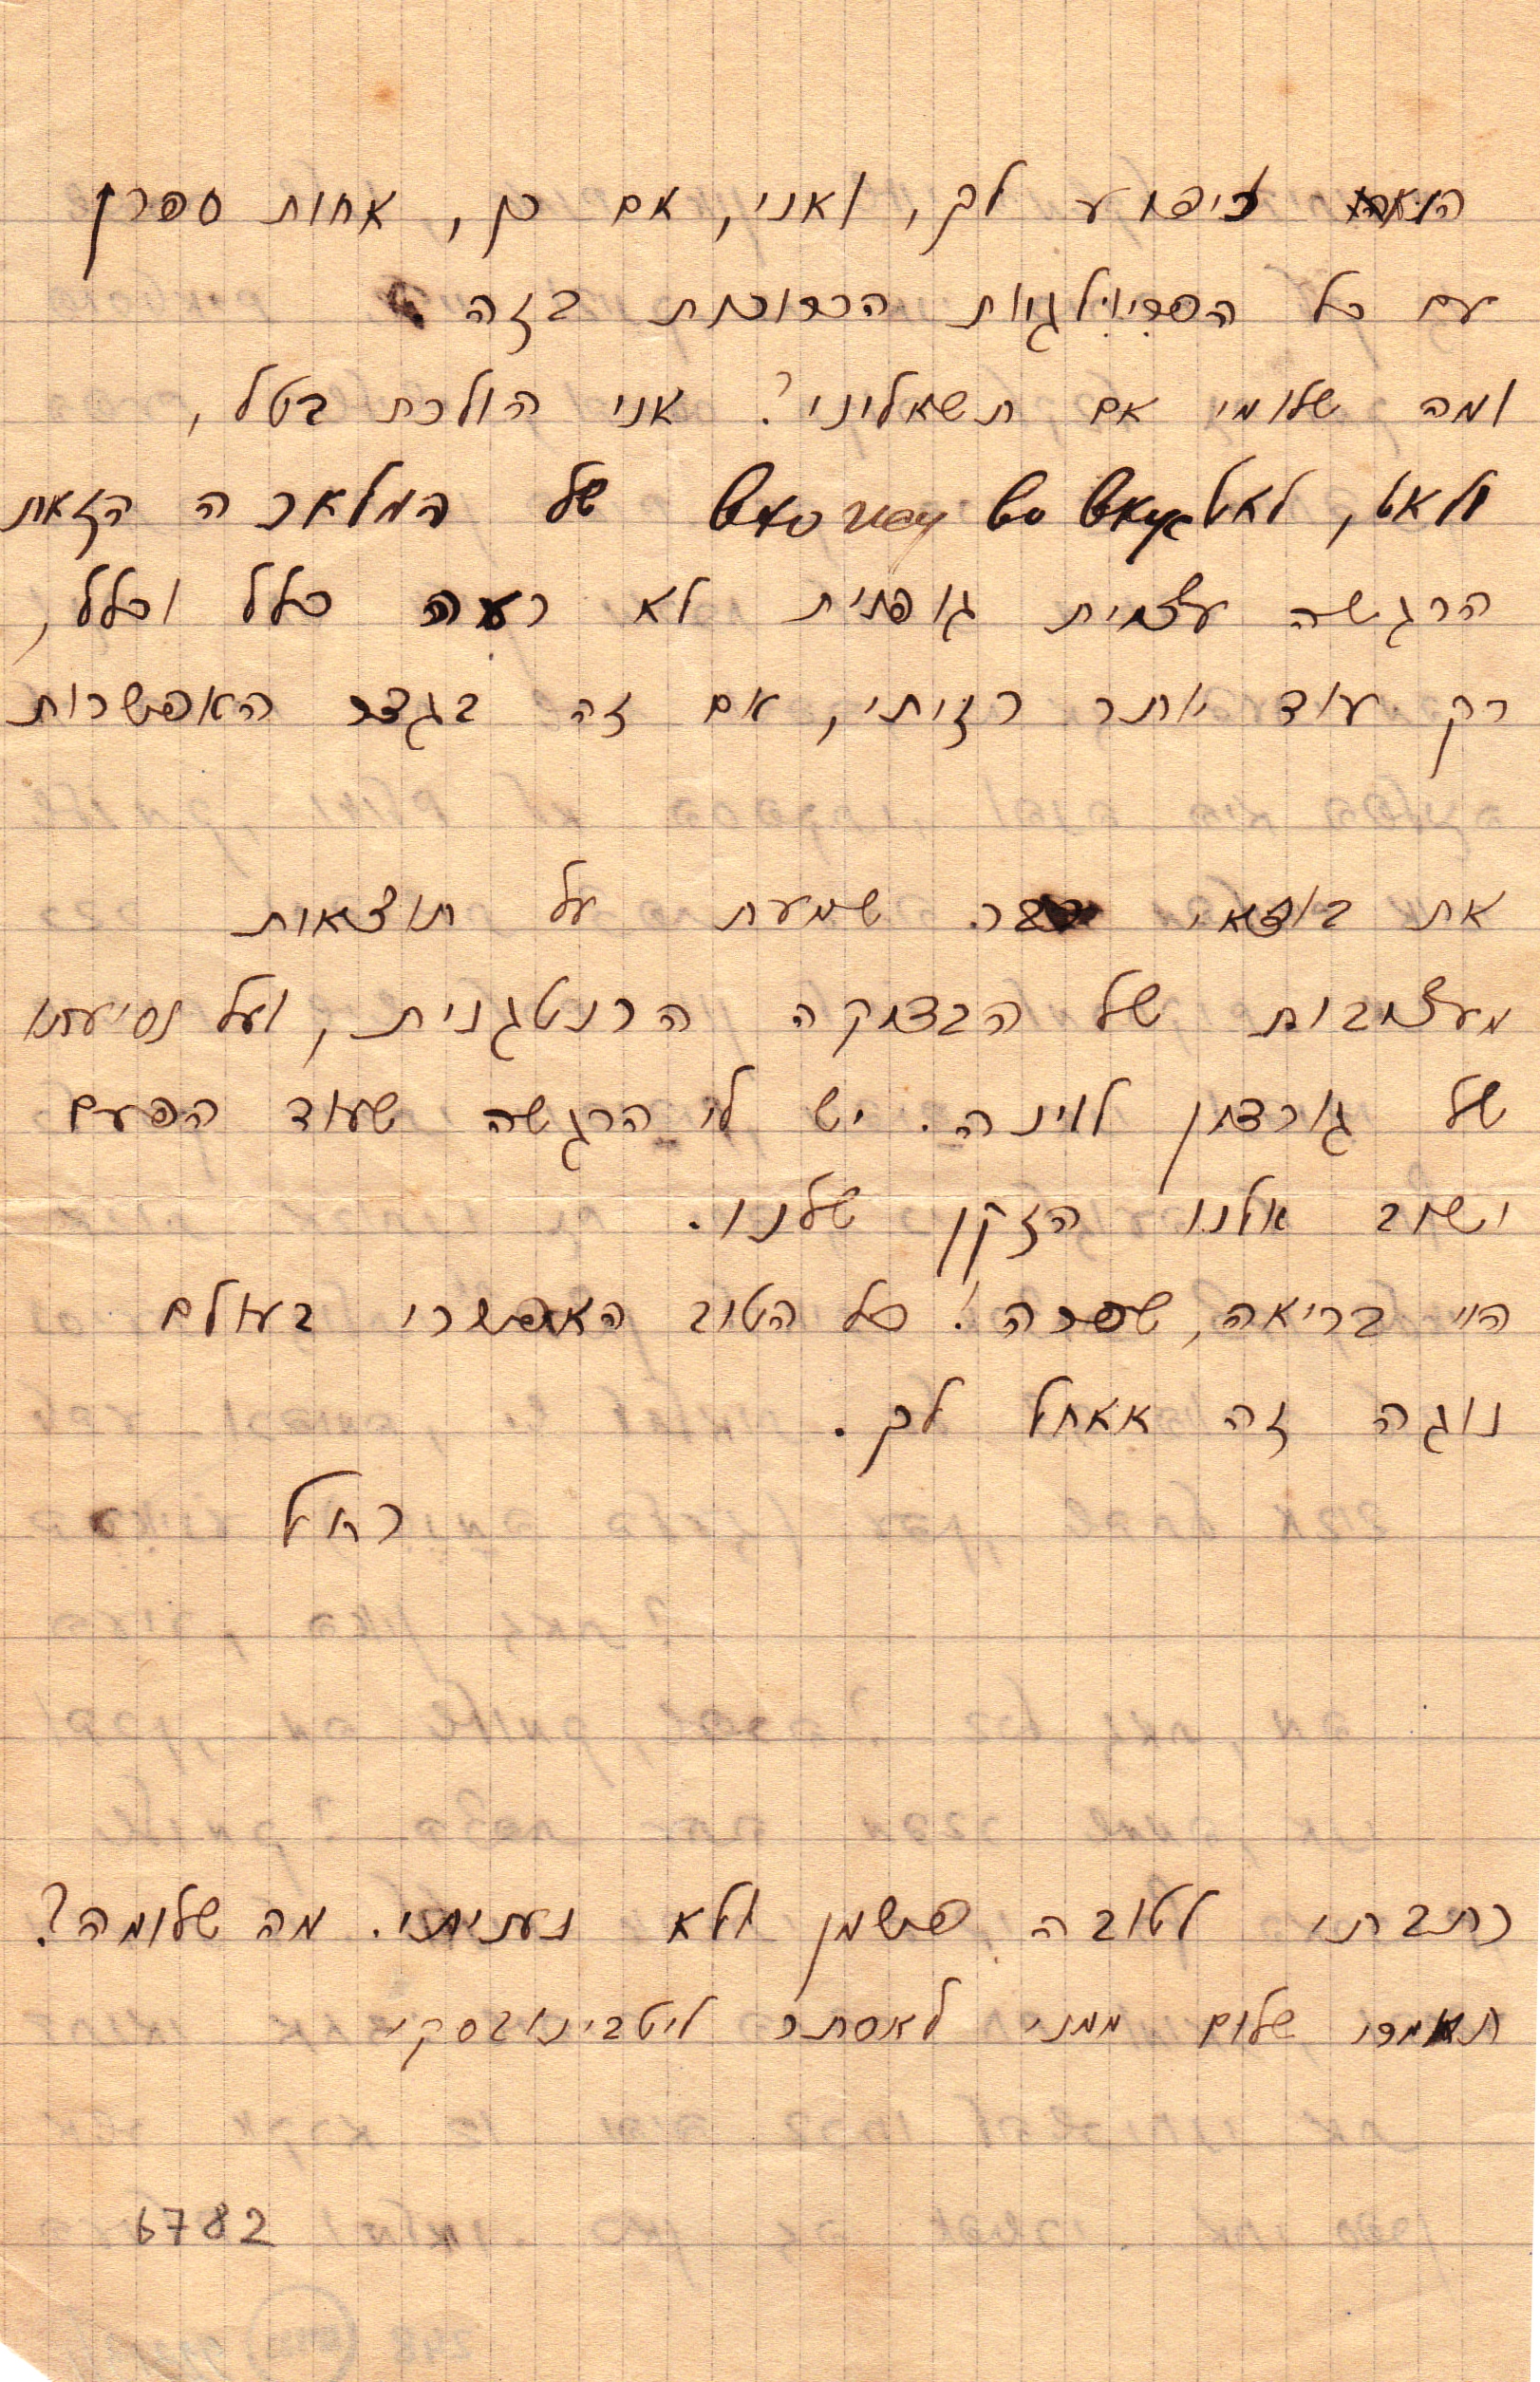 יפוע לך, ואני, אם כן, אחות ספרן
עם כל הפריוילגיות הכרוכות בזה
ומה שלומי אם תשאליני? אני הולכת בטל,
לאט, לאט вхожу во вкус של המלאכה הזאת
הרגשה עצמית גופנית לא רעה כלל וכלל,
רק עוד יותר רזיתי, אם זה בגדר האפשרות
את בודאי כבר שמעת על תוצאות
מעציבות של הבדיקה הרנטגנית, ועל נסיעתו
של גורדון לוינה. יש לי הרגשה שעוד הפעם
ישוב אלנו הזקן שלנו.
הוי בריאה, שפרה! כל הטוב האפשרי בעולם
נוגה זה אאחל לך.
רחל
כתבתי לטובה פישמן ולא נעניתי. מה שלומה?
תאמרי שלום ממני לאסתר ליטבינובסקי
6782